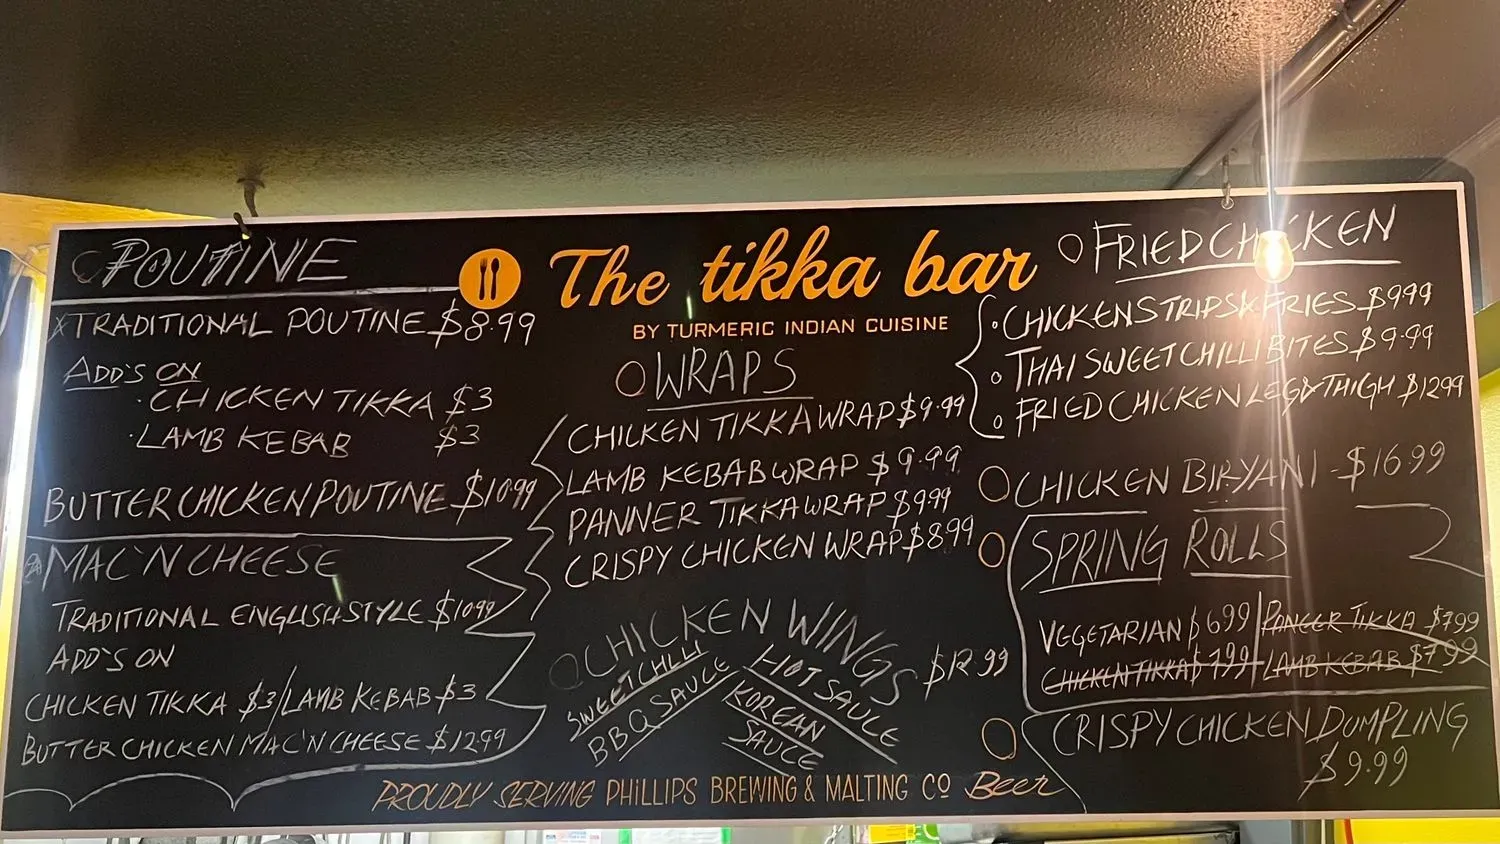 POUTINE
TRADITIONAL POUTINE $8.99
ADD'S ON
· CHICKEN TIKKA $3
· LAMB KEBAB $3
BUTTER CHICKEN POUTINE $10.99
MAC'N CHEESE
TRADITIONAL ENGLISH STYLE $10.99
ADD'S ON
CHICKEN TIKKA $3/LAMB KEBAB $3
BUTTER CHICKEN MAC'N CHEESE $12.99
The tikka bar
BY TURMERIC INDIAN CUISINE
WRAPS
CHICKEN TIKKA WRAP $9.99
LAMB KEBAB WRAP $9.99
PANNER TIKKA WRAP $9.99
CRISPY CHICKEN WRAP $8.99
CHICKEN WINGS $12.99
SWEET CHILLI
BBQ SAUCE
HOT SAUCE
KOREAN
SAUCE
FRIED CHICKEN
CHICKEN STRIPS & FRIES $9.99
THAI SWEET CHILLI BITES $9.99
FRIED CHICKEN LEG & THIGH $12.99
CHICKEN BIRYANI - $16.99
SPRING ROLLS
VEGETARIAN $6.99 | PANEER TIKKA $7.99
CHICKEN TIKKA $7.99 | LAMB KEBAB $7.99
CRISPY CHICKEN DUMPLING
$9.99
PROUDLY SERVING PHILLIPS BREWING & MALTING CO Beer